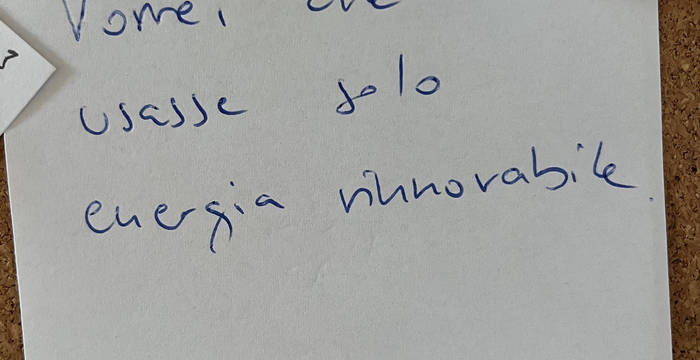 Vorrei che
usasse solo
energia rinnovabile.